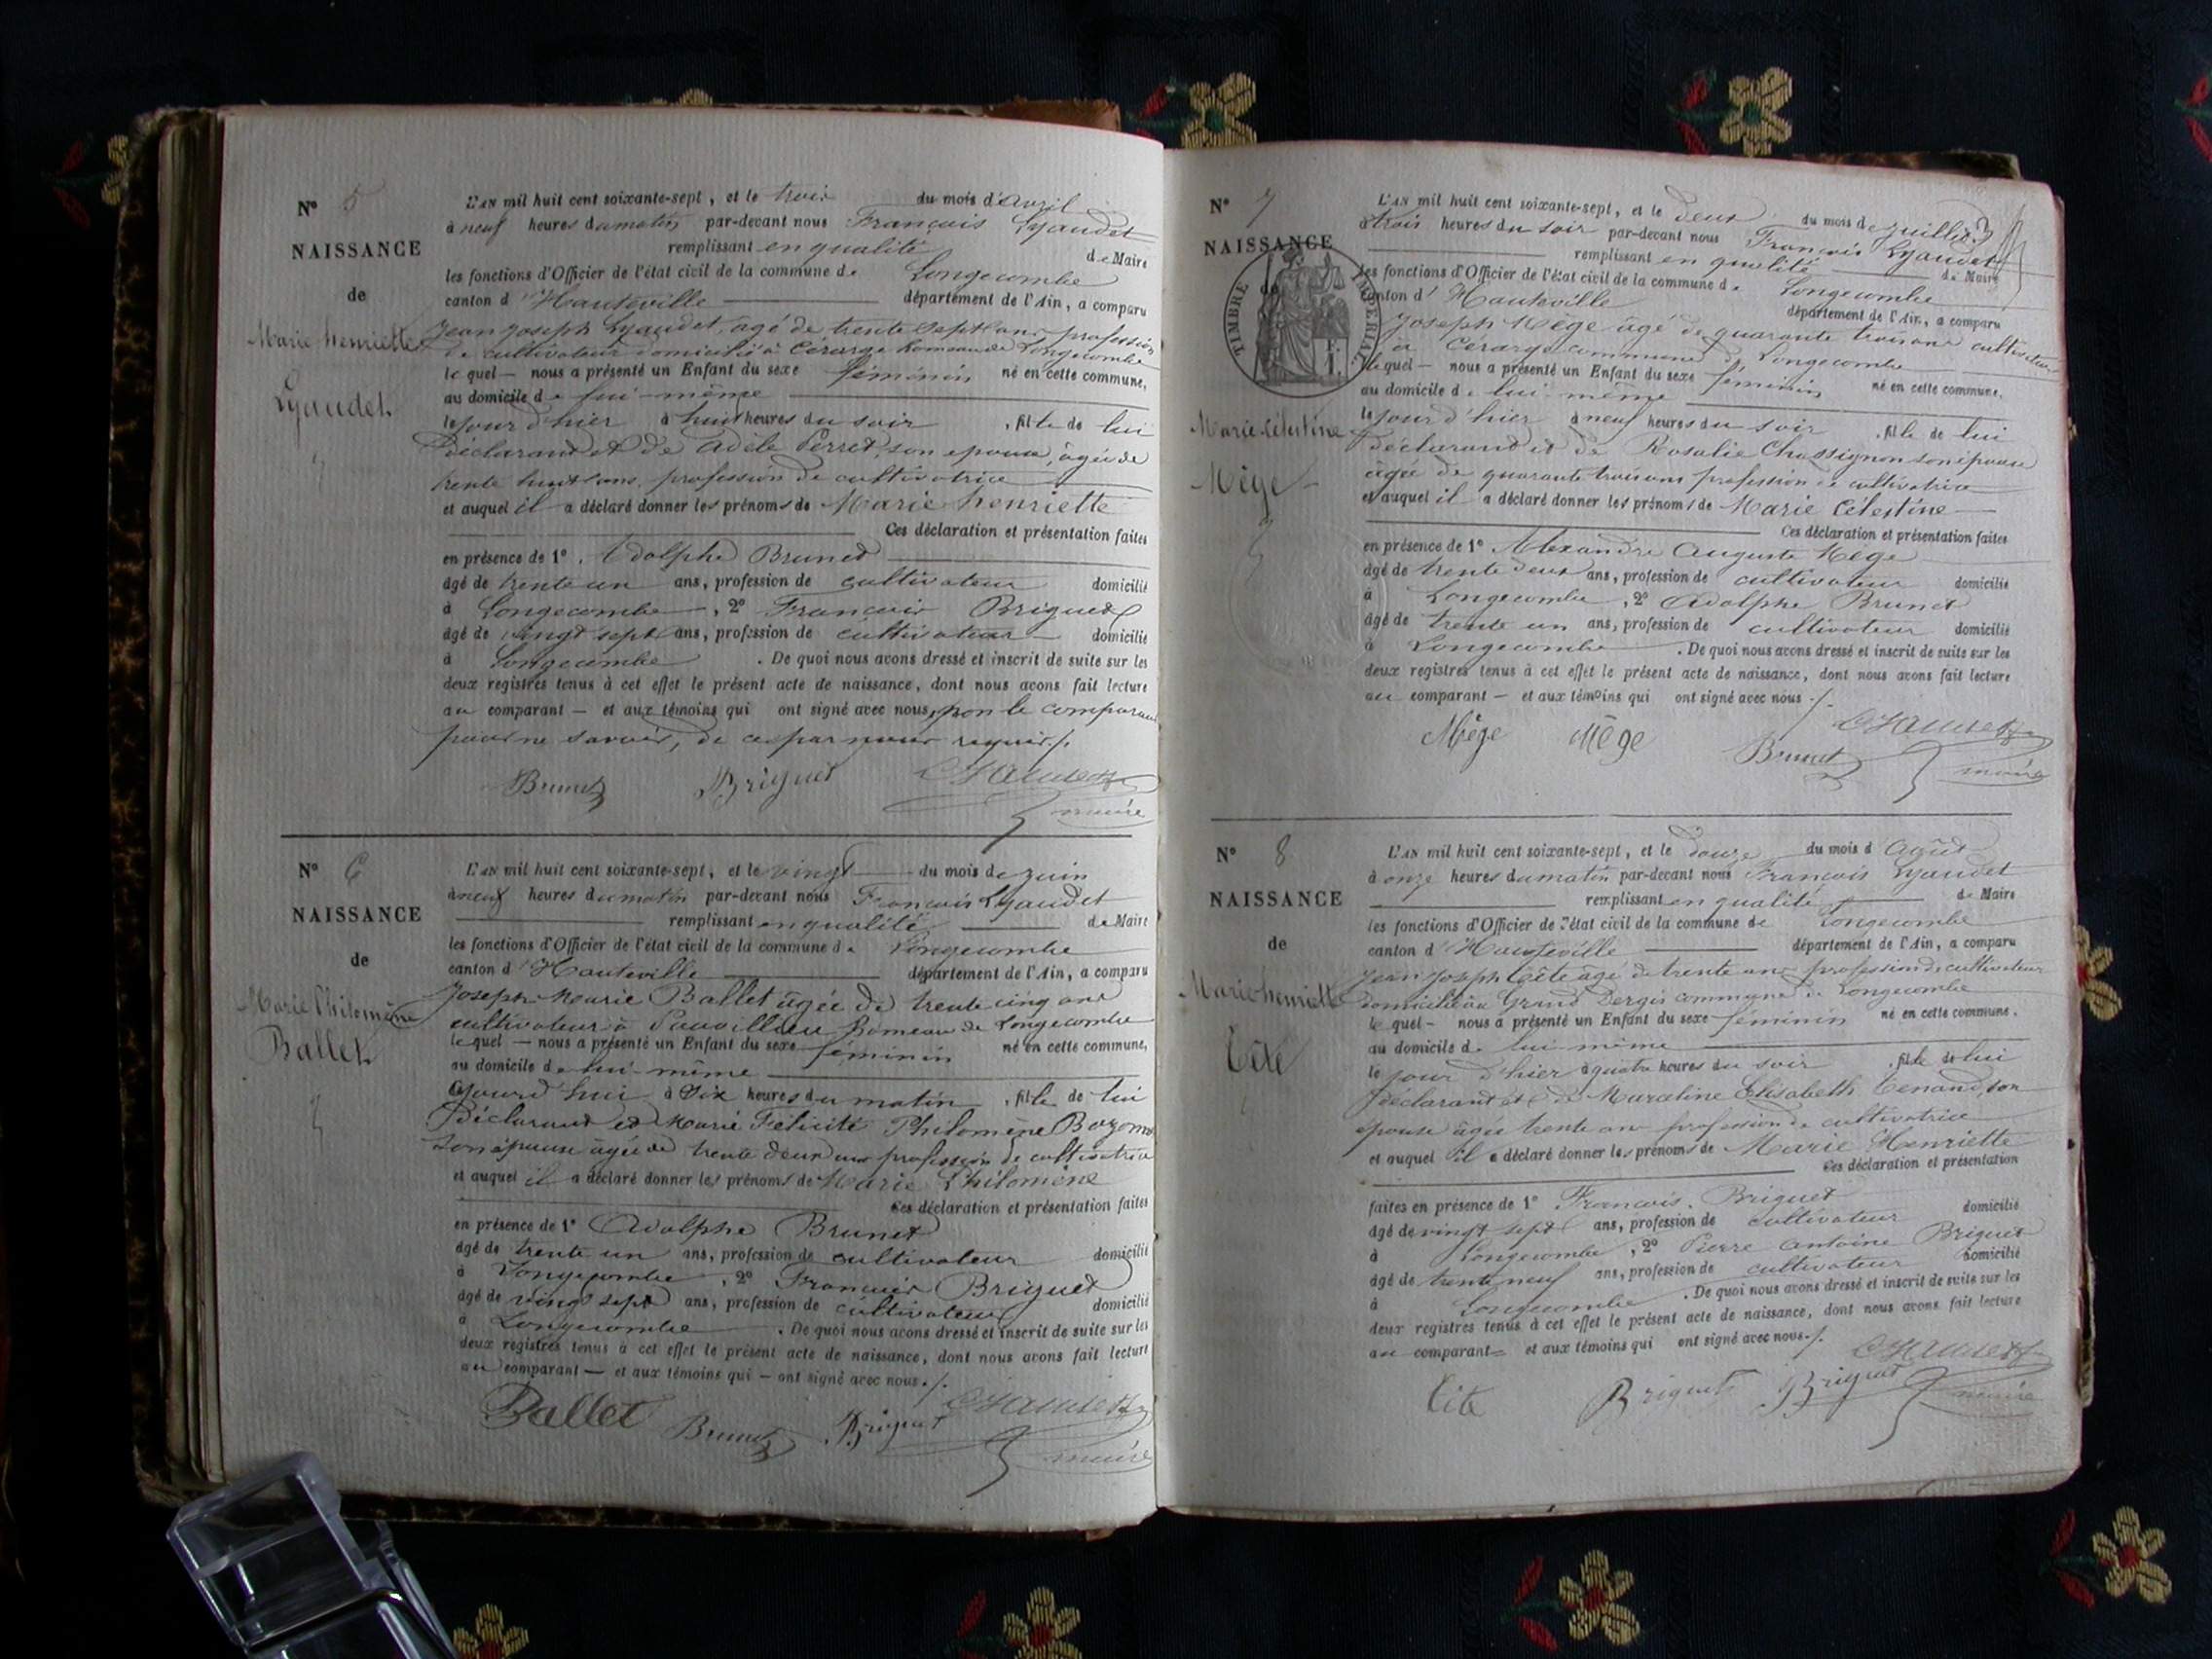 N° 5
NAISSANCE
de
Marie henriette
Lyaudet
L'AN mil huit cent soixante-sept, et le trois du mois d'avril
à neuf heures du matin par-devant nous François Lyaudet
remplissant en qualité de Maire
les fonctions d'Officier de l'état civil de la commune de Longecombe
canton d'Hauteville département de l'Ain, a comparu
jean joseph Lyaudet, âgé de trente sept ans profession
de cultivateur domicilié à Cérarge hameau de Longecombe
lequel — nous a présenté un Enfant du sexe féminin né en cette commune,
au domicile de lui-même
le jour d'hier à huit heures du soir, fille de lui
Déclarant et de Adèle Perret, son epouse, âgée de
trente huit ans, profession de cultivatrice
et auquel il a déclaré donner les prénoms de Marie henriette
Ces déclaration et présentation faites
en présence de 1° Adolphe Brunet
âgé de trente un ans, profession de cultivateur domicilié
à Longecombe, 2° François Briguet
âgé de vingt sept ans, profession de cultivateur domicilié
à Longecombe. De quoi nous avons dressé et inscrit de suite sur les
deux registres tenus à cet effet le présent acte de naissance, dont nous avons fait lecture
au comparant — et aux témoins qui ont signé avec nous, non le comparant
pour ne savoir, de ce par nous requis /.
Brunet Briguet Lyaudet
maire
N° 6
NAISSANCE
de
Marie Philomène
Ballet
L'AN mil huit cent soixante-sept, et le vingt du mois de juin
à neuf heures du matin par-devant nous François Lyaudet
remplissant en qualité de Maire
les fonctions d'Officier de l'état civil de la commune de Longecombe
canton d'Hauteville département de l'Ain, a comparu
Joseph Marie Ballet âgée de trente cinq ans
cultivateur à hameau de Longecombe
lequel — nous a présenté un Enfant du sexe féminin né en cette commune,
au domicile de lui-même
Ajourd'hui à Six heures du matin, fille de lui
Déclarant et Marie Félicité Philomène
son épouse âgée de trente deux ans profession de cultivatrice
et auquel il a déclaré donner les prénoms de Marie Philomène
Ces déclaration et présentation faites
en présence de 1° Adolphe Brunet
âgé de trente un ans, profession de cultivateur domicilié
à Longecombe, 2° François Briguet
âgé de vingt sept ans, profession de cultivateur domicilié
à Longecombe. De quoi nous avons dressé et inscrit de suite sur les
deux registres tenus à cet effet le présent acte de naissance, dont nous avons fait lecture
au comparant — et aux témoins qui — ont signé avec nous. /.
Ballet Brunet Briguet Lyaudet
maire
N° 7
NAISSANCE
TIMBRE IMPERIAL
Marie célestine
Mège
L'AN mil huit cent soixante-sept, et le deux du mois de juillet
à trois heures du soir par-devant nous François Lyaudet
remplissant en qualité de Maire
les fonctions d'Officier de l'état civil de la commune de Longecombe
canton d'Hauteville département de l'Ain, a comparu
Joseph Mège âgé de quarante trois ans cultivateur
à Cérarge commune de Longecombe
lequel — nous a présenté un Enfant du sexe féminin né en cette commune,
au domicile de lui-même
le jour d'hier à neuf heures du soir, fille de lui
déclarant et de Rosalie Chassignon son épouse
âgée de quarante trois ans profession de cultivatrice
et auquel il a déclaré donner les prénoms de Marie Célestine
Ces déclaration et présentation faites
en présence de 1° Alexandre Auguste Mège
âgé de trente deux ans, profession de cultivateur domicilié
à Longecombe, 2° Adolphe Brunet
âgé de trente un ans, profession de cultivateur domicilié
à Longecombe. De quoi nous avons dressé et inscrit de suite sur les
deux registres tenus à cet effet le présent acte de naissance, dont nous avons fait lecture
au comparant — et aux témoins qui ont signé avec nous. /.
Mège Mège Brunet Lyaudet
maire
N° 8
NAISSANCE
de
Marie henriette
Tête
L'AN mil huit cent soixante-sept, et le douze du mois d'Août
à onze heures du matin par-devant nous François Lyaudet
remplissant en qualité de Maire
les fonctions d'Officier de l'état civil de la commune de Longecombe
canton d'Hauteville département de l'Ain, a comparu
jean joseph Tête âgé de trente ans profession de cultivateur
domicilié au Grand Dergis commune de Longecombe
lequel — nous a présenté un Enfant du sexe féminin né en cette commune,
au domicile de lui-même
le jour d'hier à quatre heures du soir, fille de lui
déclarant et de Marceline Elisabeth Tenand, son
épouse âgée trente ans profession de cultivatrice
et auquel il a déclaré donner les prénoms de Marie Henriette
Ces déclaration et présentation
faites en présence de 1° François Briguet domicilié
âgé de vingt sept ans, profession de cultivateur
à Longecombe, 2° Pierre Antoine Briguet
âgé de trente neuf ans, profession de cultivateur domicilié
à Longecombe. De quoi nous avons dressé et inscrit de suite sur les
deux registres tenus à cet effet le présent acte de naissance, dont nous avons fait lecture
au comparant — et aux témoins qui ont signé avec nous. /.
Tête Briguet Briguet Lyaudet
maire